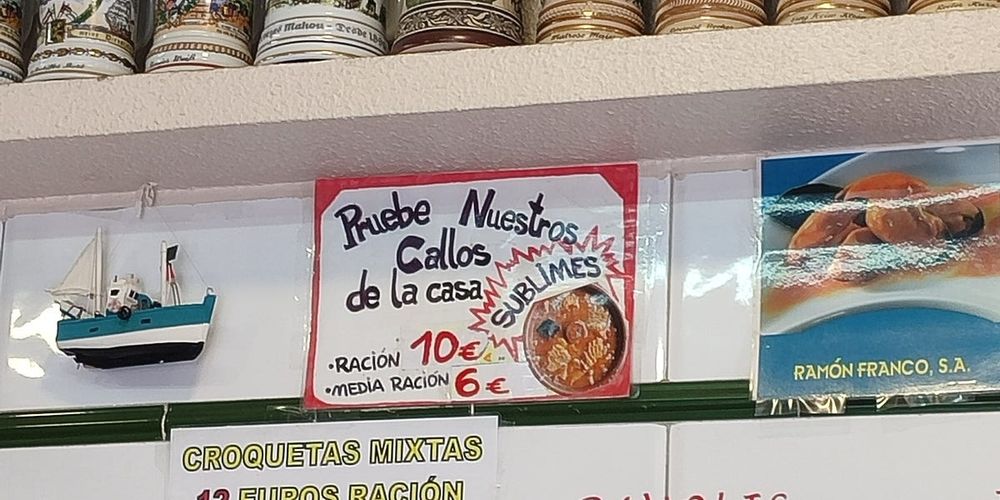 Mahou - Desde
Pruebe Nuestros
Callos
de la casa
SUBLIMES
·RACIÓN 10€
·MEDIA RACIÓN 6€
RAMÓN FRANCO, S.A.
CROQUETAS MIXTAS
EUROS RACIÓN